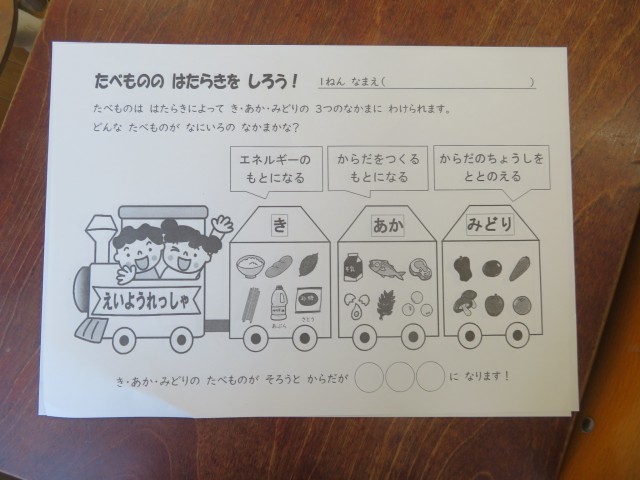 たべものの はたらきを しろう！
1ねん なまえ(                    )
たべものは はたらきによって き・あか・みどりの 3つのなかまに わけられます。
どんな たべものが なにいろの なかまかな？
エネルギーの
もとになる
からだをつくる
もとになる
からだのちょうしを
ととのえる
き
あか
みどり
えいようれっしゃ
牛乳
砂糖
あぶら
さとう
き・あか・みどりの たべものが そろうと からだが ○○○ に なります！